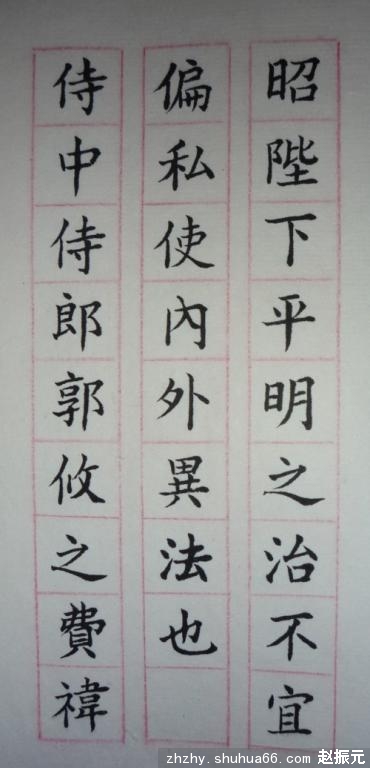 昭陛下平明之治不宜
偏私使內外異法也
侍中侍郎郭攸之費禕
zhzhy.shuhua66.com 赵振元